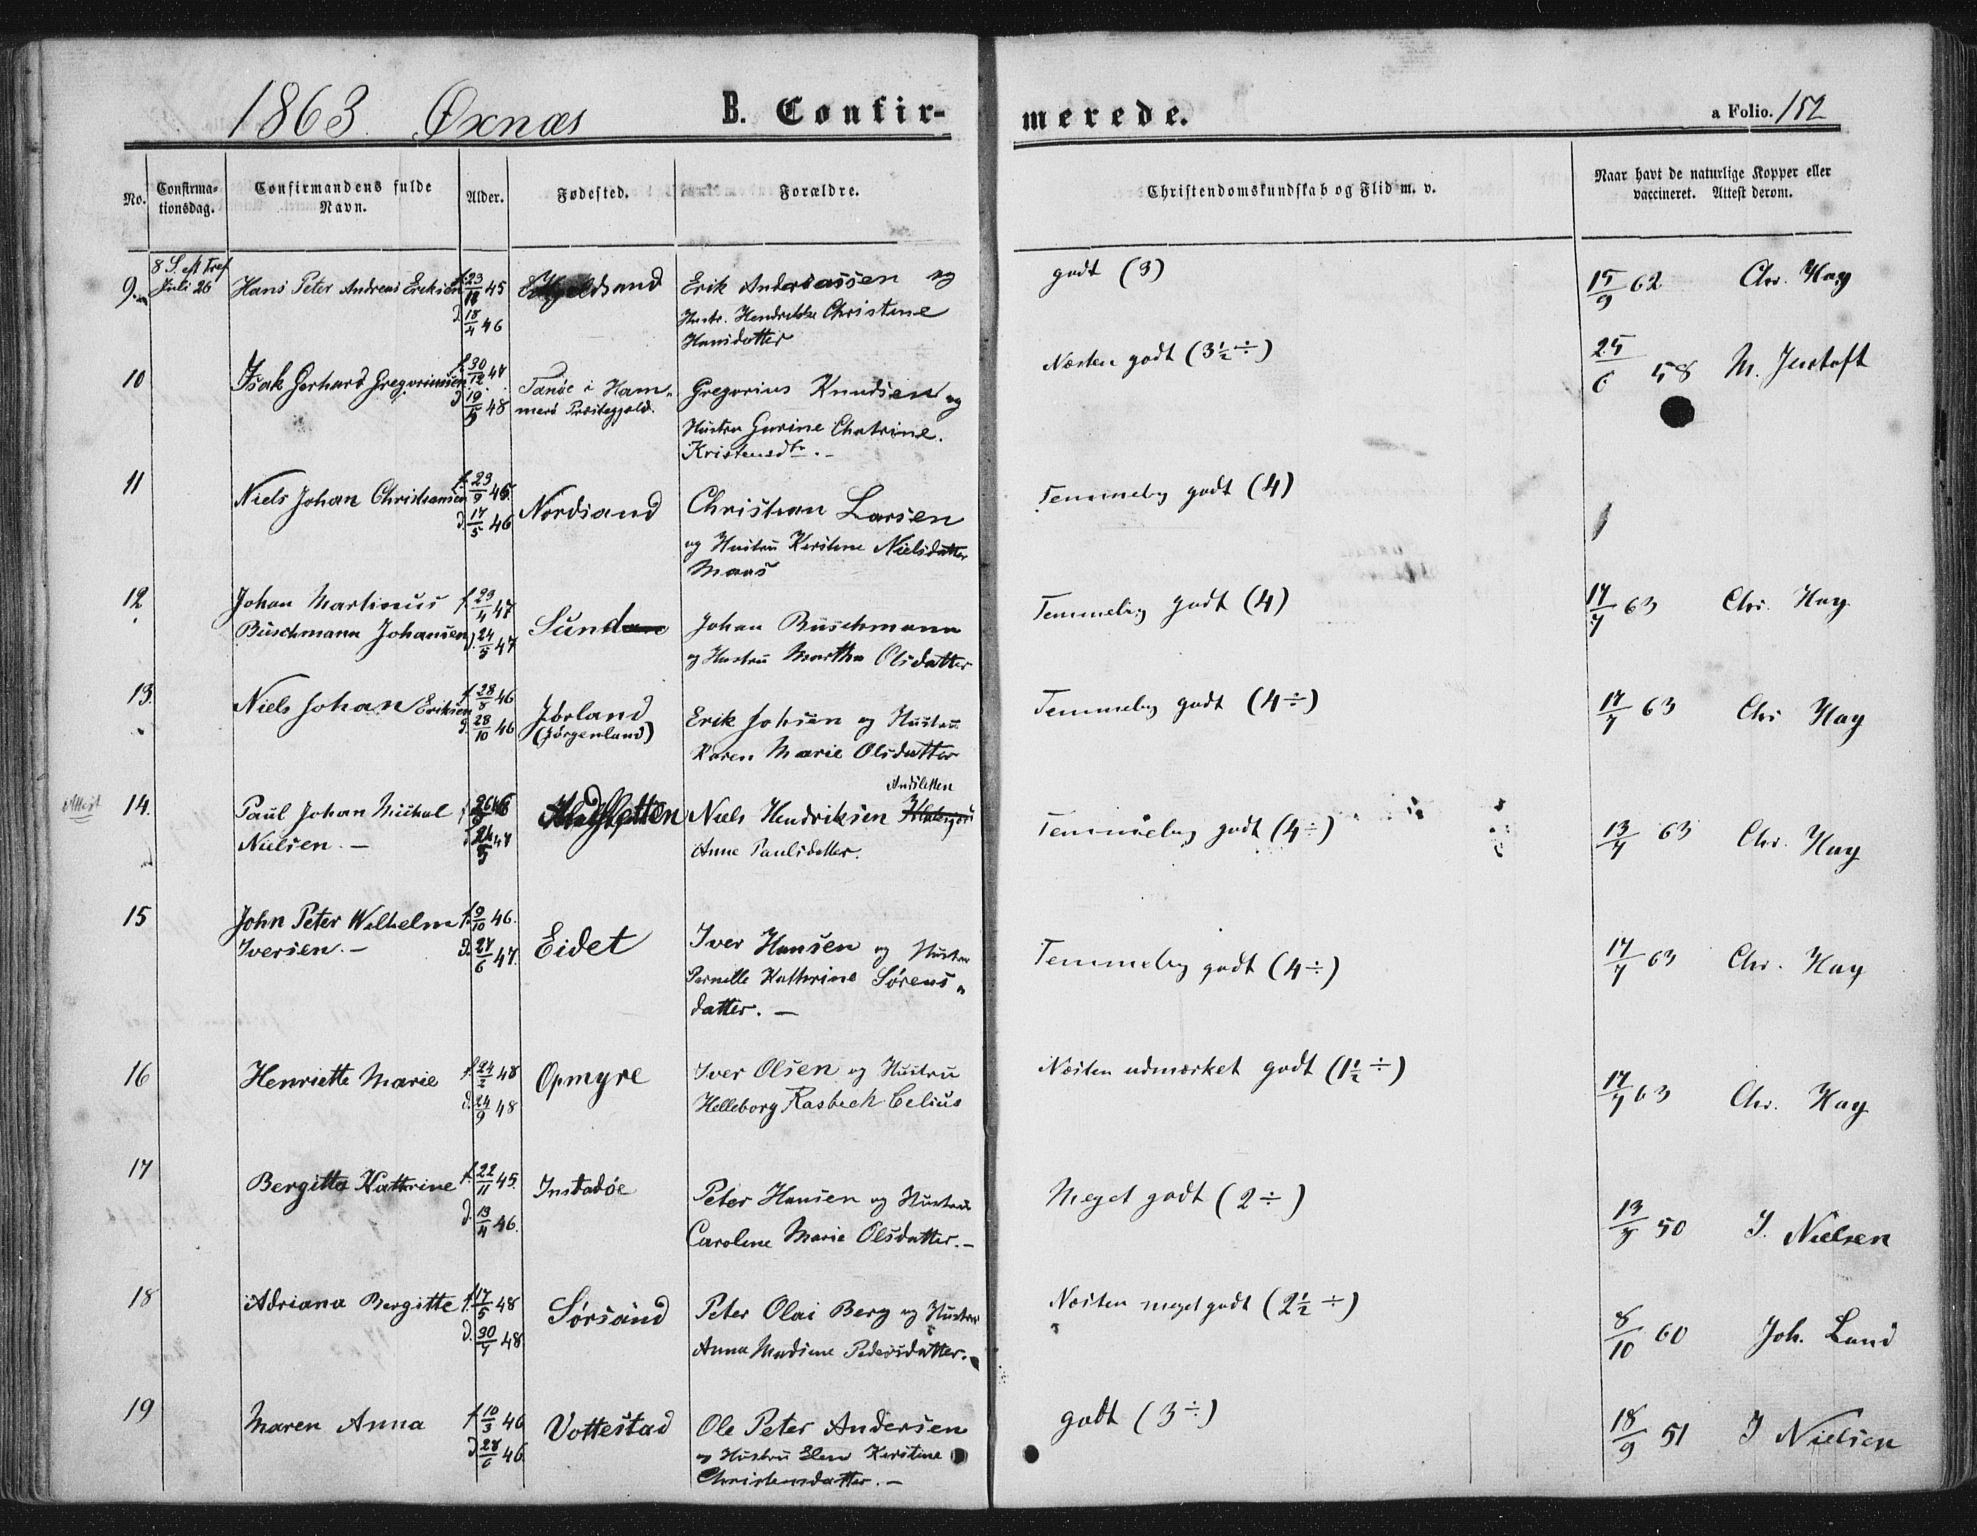 1863. Øxnæs B. Confirmerede. a Folio. 152
No. Confirmationsdag. Confirmandens fulde Navn. Alder. Fødested. Forældre. Christendomskundskab og Flid m. v. Naar havt de naturlige Kopper eller vaccineret. Attest derom.
9. 8 S. eft Tref Juli 26 Hans Peter Andreas Eriksen f. 23/12 45 d. 18/4 46 Erik Andreassen og Hustr. Hendrikke Christine Hansdatter godt (3) 15/9 62 Chr. Hay
10 Isak Gerhard Gregoriussen f. 30/12 47 d. 19/9 48 Tanøe i Hammerø Præstegjeld. Gregorius Knudsen og Hustru Gurine Chatrine Kristensdtr. Næsten godt (3½ ÷) 25/6 58 M. Jentoft
11 Niels Johan Christiansen f. 29/9 45 d. 17/5 46 Nordsand Christian Larsen og Hustru Kirstine Nielsdatter Maas Temmelig godt (4)
12 Johan Martinus Buschmann Johansen f. 23/4 47 d. 24/5 47 Sund Johan Buschmann og Hustru Martha Olsdatter Temmelig godt (4) 17/7 63 Chr. Hay
13 Niels Johan Eriksen f. 28/8 46 d. 28/10 46 Jørland (Jørgenland) Erik Johsen og Hustru Karen Marie Olsdatter Temmelig godt (4 ÷) 17/7 63 Chr Hay
Attest 14. Paul Johan Mickal Nielsen. — 46 d. 24/5 47 Niels Hendriksen Andsletten Anne Paulsdatter. Temmelig godt (4 ÷) 13/7 63 Chr. Hay
15 John Peter Wilhelm Iversen. — f. 9/10 46. d. 27/6 47. Eidet Iver Hansen og Hustru Pernille Kathrine Sørensdatter. — Temmelig godt (4 ÷) 17/7 63 Chr. Hay
16 Henriette Marie f. 24/2 48 d. 24/9 48 Opmyre Iver Olsen og Hustru Helleborg Rasbech Celius Næsten udmærket godt (1½ ÷) 17/7 63 Chr. Hay
17 Bergitte Kathrine f. 22/11 45. d. 13/4 46. Instadøe Peter Hansen og Hustru Caroline Marie Olsdatter. — Meget godt (2 ÷) 13/7 50 J. Nielsen
18 Adriana Bergitte f. 17/5 48 d. 30/7 48 Sørsand Peter Olai Berg og Hustru Anna Madsine Pedersdatter. Næsten meget godt (2½ ÷) 8/10 60 Joh. Lund
19 Maren Anna f. 10/3 46 d. 28/6 46. Vottestad Ole Peter Andersen og Hustru Elen Kirstine Christensdatter. — godt (3 ÷) 18/9 51 J Nielsen